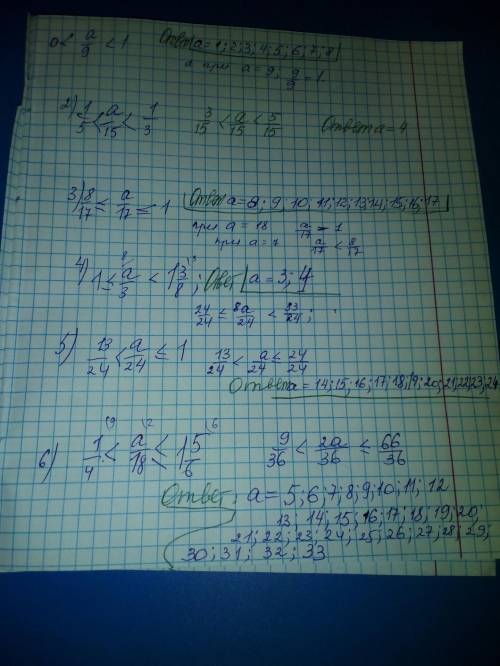 0 < a/9 < 1 Ответ a = 1; 2; 3; 4; 5; 6; 7; 8
а при a = 9; 9/9 = 1
2) 1/5 < a/15 < 1/3 3/15 < a/15 < 5/15 Ответ a = 4
3) 8/17 ≤ a/17 ≤ 1 Ответ a = 8; 9; 10; 11; 12; 13; 14; 15; 16; 17
при a = 18 a/17 = 1
при a = 7 a/17 < 8/17
4) 1 ≤ a/3 < 1 3/8; Ответ a = 3; 4
24/24 ≤ 8a/24 < 33/24;
5) 13/24 < a/24 ≤ 1 13/24 < a/24 ≤ 24/24
Ответ a = 14; 15; 16; 17; 18; 19; 20; 21; 22; 23; 24
6) 1/4 < a/18 ≤ 1 5/6 9/36 < 2a/36 ≤ 66/36
Ответ: a = 5; 6; 7; 8; 9; 10; 11; 12
13; 14; 15; 16; 17; 18; 19; 20;
21; 22; 23; 24; 25; 26; 27; 28; 29;
30; 31; 32; 33